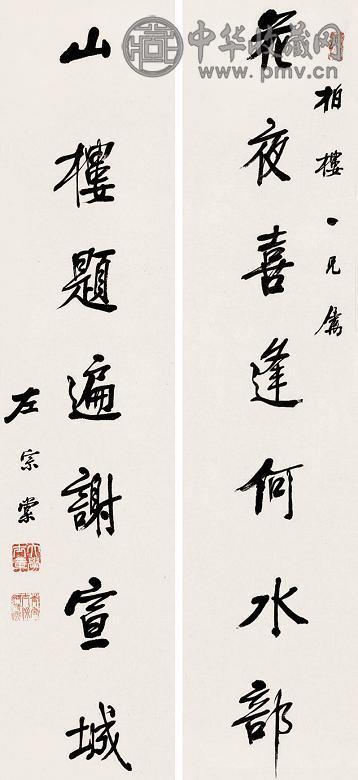 中华收藏网
www.pmv.cn
柏樓一兄屬
花夜喜逢何水部
山樓題遍謝宣城
左宗棠